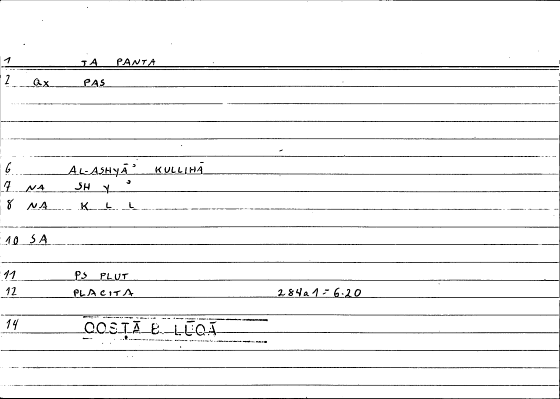 1 TA PANTA
2 ax PAS
6 AL-ASHYĀʾ KULLIHĀ
7 NA SH Y ʾ
8 NA K L L
10 SA
11 PS PLUT
12 PLACITA 284a1=6.20
14 QOSṬĀ B LŪQĀ